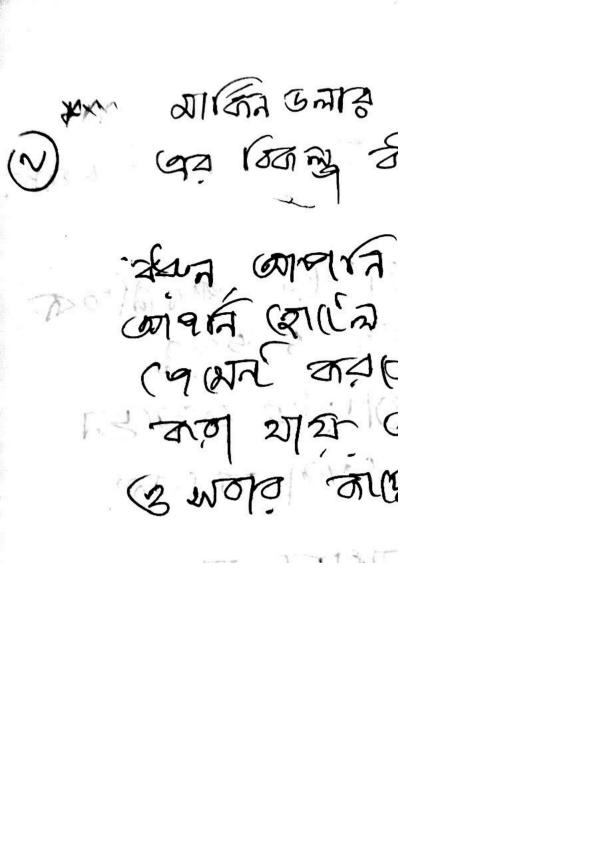 মার্কিন ডলার
এর বিকল্প
ধরুন আপনি
আপনি হোটেল
পেমেন্ট
করা যায়
ও সবার